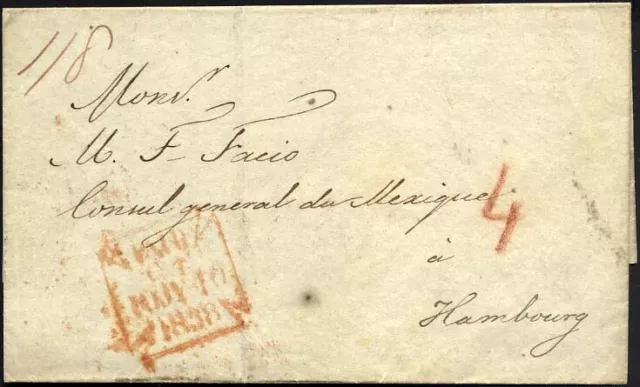 1/8
Monsr.
M. F- Facio
Consul general du Mexique
4
à
Hambourg
PAID
10
1838